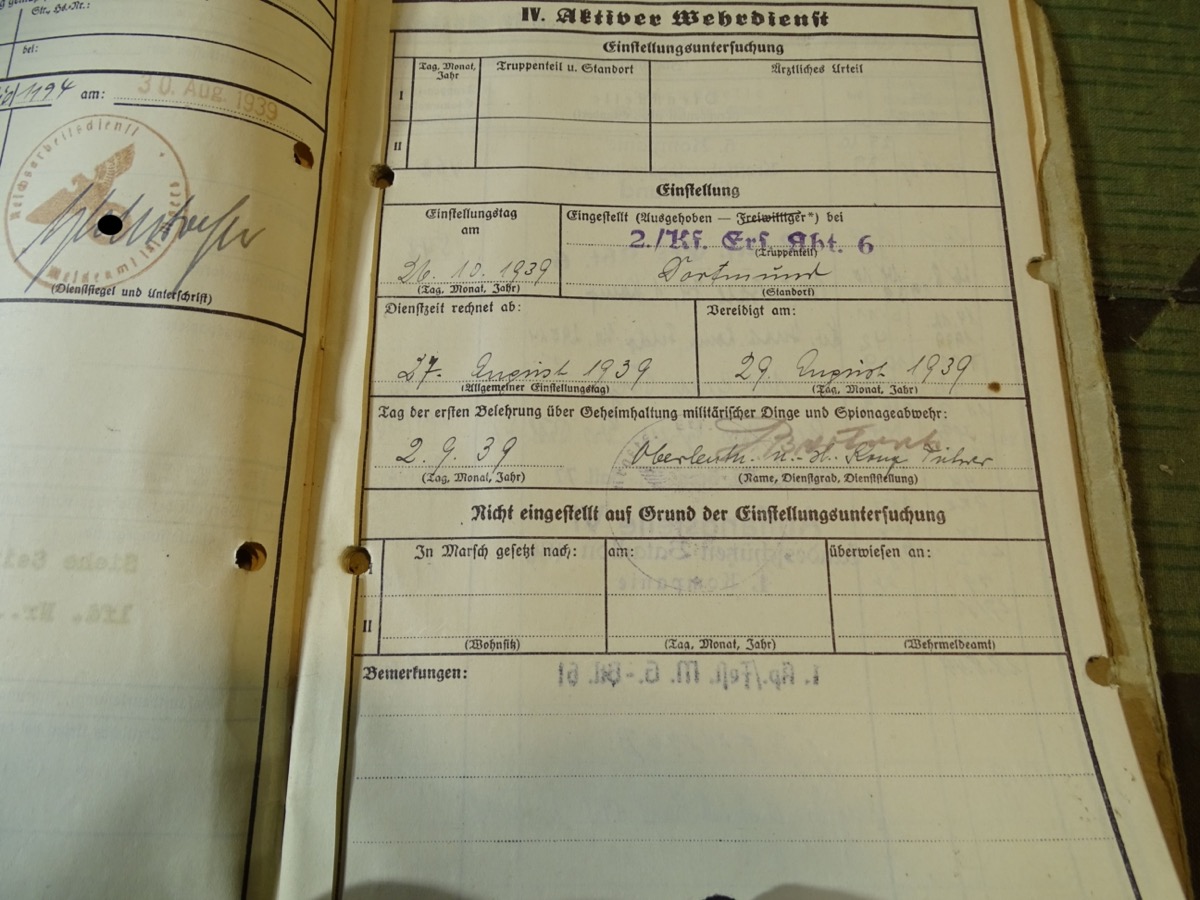 Str., Hs.-Nr.:
bei:
1194 am: 30. Aug. 1939
Reichsarbeitsdienst
Meldeamt
(Dienstsiegel und Unterschrift)
Siehe Sei
lfd. Nr.
IV. Aktiver Wehrdienst
Einstellungsuntersuchung
Tag, Monat, Jahr
Truppenteil u. Standort
Ärztliches Urteil
I
II
Einstellung
Einstellungstag
am
26. 10. 1939
(Tag, Monat, Jahr)
Eingestellt (Ausgehoben — Freiwilliger*) bei
2./Kf. Ers. Abt. 6
(Truppenteil)
Dortmund
(Standort)
Dienstzeit rechnet ab:
27. August 1939
(Allgemeiner Einstellungstag)
Vereidigt am:
29. August 1939
(Tag, Monat, Jahr)
Tag der ersten Belehrung über Geheimhaltung militärischer Dinge und Spionageabwehr:
2. 9. 39
(Tag, Monat, Jahr)
Oberleutn. u. Komp Führer
(Name, Dienstgrad, Dienststellung)
Nicht eingestellt auf Grund der Einstellungsuntersuchung
In Marsch gesetzt nach:
am:
überwiesen an:
II
(Wohnsitz)
(Tag, Monat, Jahr)
(Wehrmeldeamt)
Bemerkungen:
1. Kp./Fest. M. G.-Btl. 61
1. Kompanie